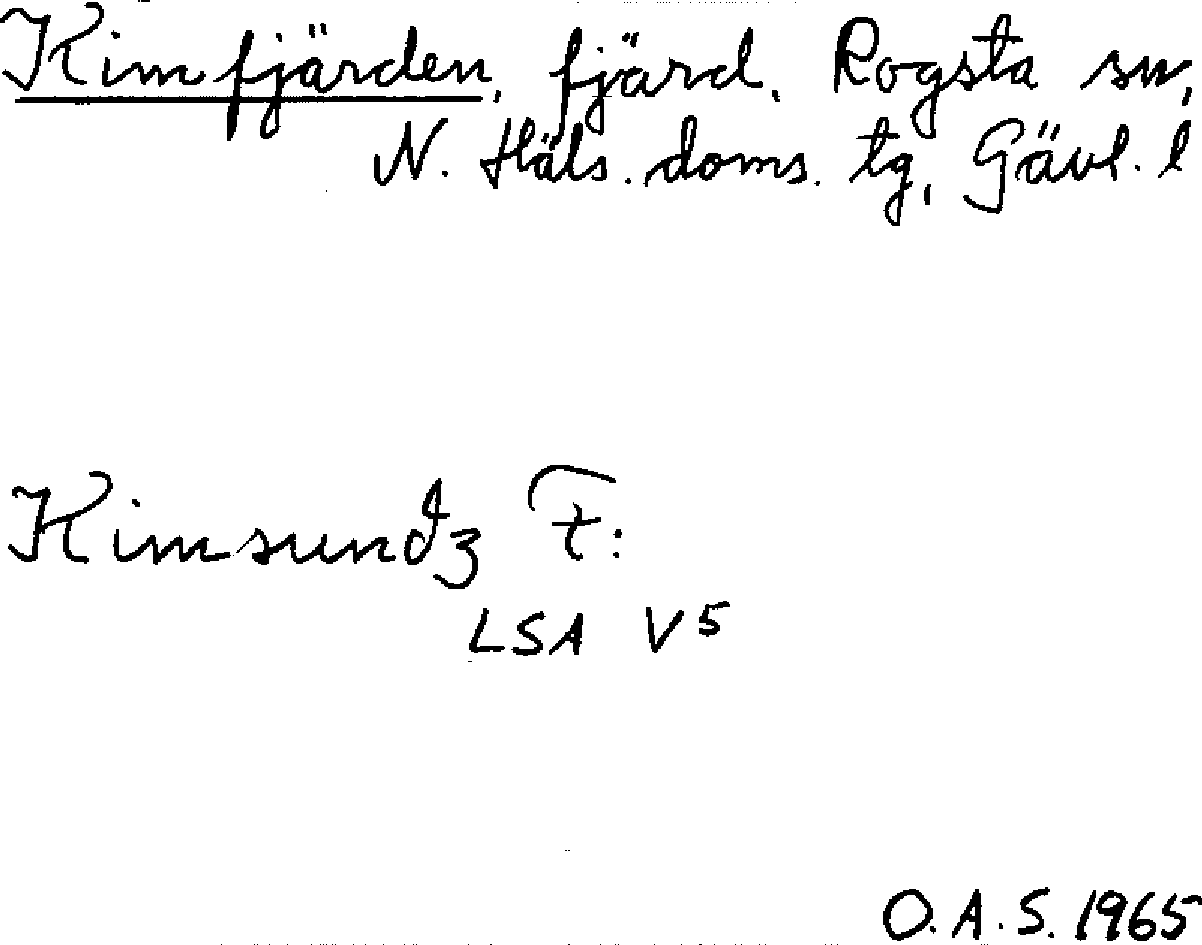 Kimfjärden, fjärd, Rogsta sn,
N. Häls. doms. tg, Gävl. l
Kimsundz F:
LSA V5
O.A.S. 1965